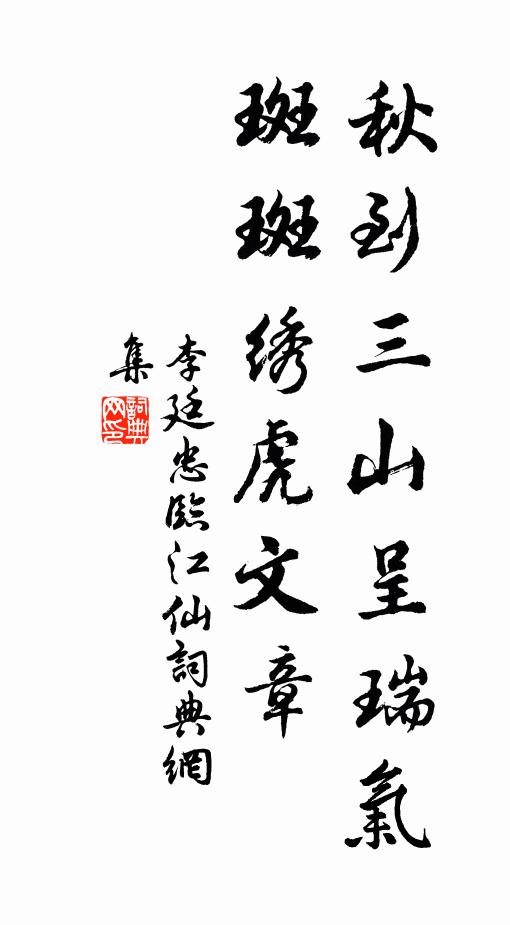 秋到三山呈瑞氣
斑斑绣虎文章
李廷忠臨江仙詞典網
集
詞典网印